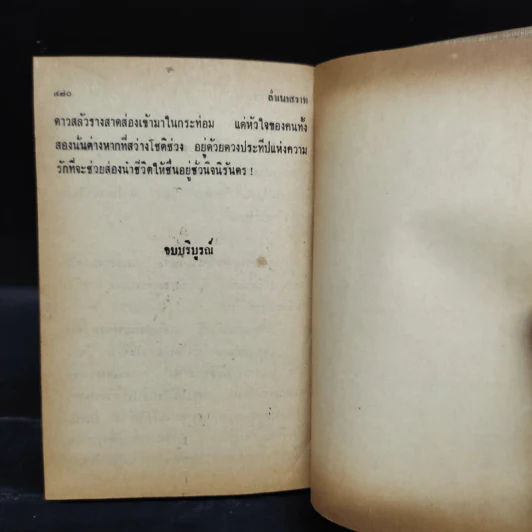 ๔๘๐ ลำเนาสวาท
ดาวสลัวรางสาดส่องเข้ามาในกระท่อม แต่หัวใจของคนทั้ง
สองนั้นต่างหากที่สว่างโชติช่วง อยู่ด้วยดวงประทีปแห่งความ
รักที่จะช่วยส่องนำชีวิตให้ชื่นอยู่ชั่วนิจนิรันดร !
จบบริบูรณ์